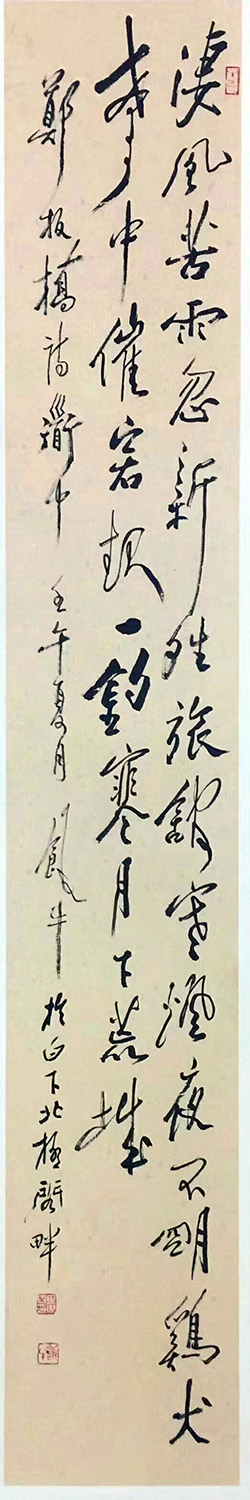 淒風苦雨忽新夝旅館寒夜不明鷄犬
中催客起一鈎寒月下荒城
鄭板橋詩衜中 壬午夏月 牛於白下北極閣畔